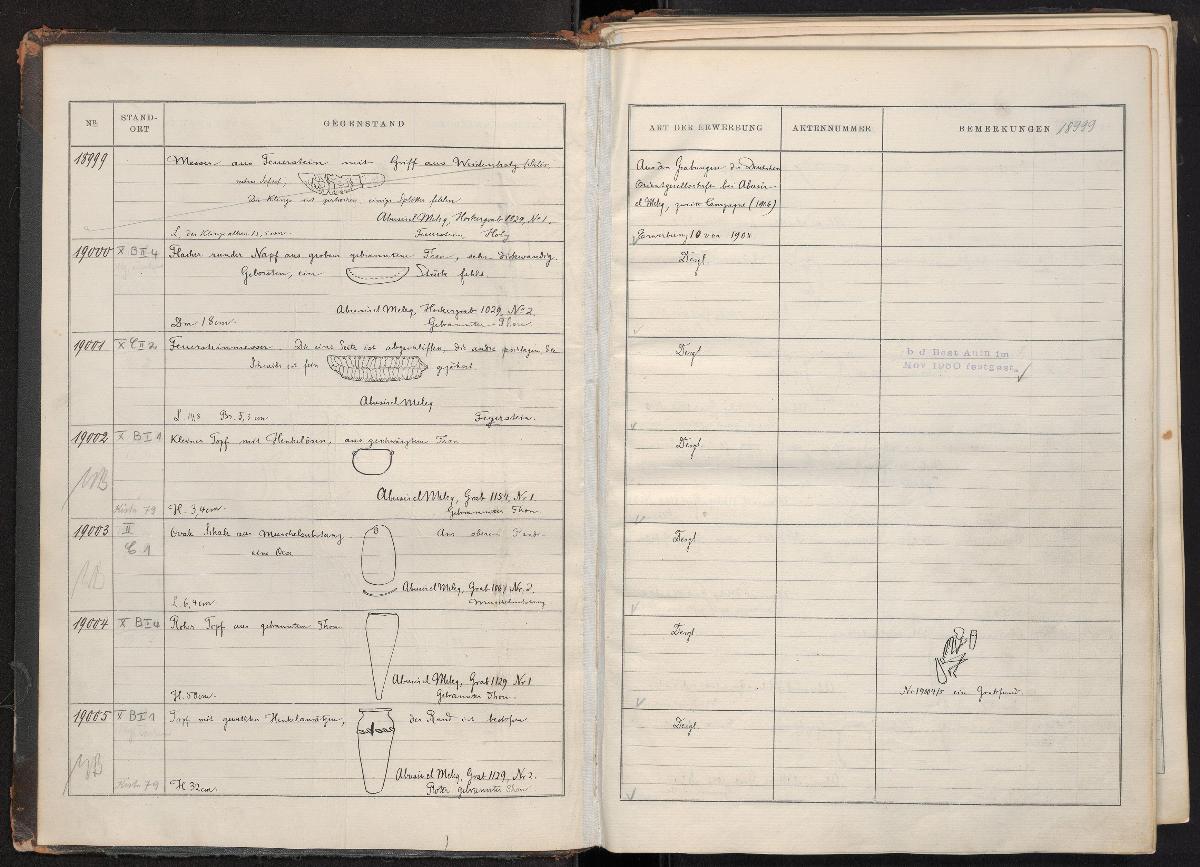 Nr.
STAND-
ORT
GEGENSTAND
18999
Messer aus Feuerstein mit Griff aus
Die Klinge ist zerbrochen, einige Splitter fehlen
Abusir el Meleq, Hockergrab 1029, No 1.
L. der Klinge allein
Feuerstein Holz
19000
X B II 4
Flacher runder Napf aus grobem gebranntem Ton, sehr dickwandig.
Geborsten, ein Stück fehlt.
Abusir el Meleq, Hockergrab 1029, No 2.
Dm 18 cm.
Gebrannter Thon.
19001
X C II 2
Feuersteinmesser. Die eine Seite ist abgeschliffen, die andre
Schneide ist fein gezähnt.
Abusir el Meleq
L. 14,8 Br. 5,3 cm
Feuerstein.
19002
X B I 1
Kleiner Topf mit Henkelösen, aus geschwärztem Thon
Abusir el Meleq, Grab 1154, No 1.
Kiste 79
H. 3,4 cm.
Gebrannter Thon.
19003
II
C 1
Ovale Schale aus
eine Öse
Abusir el Meleq, Grab No. 2.
L. 6,4 cm
19004
X B I 4
Roher Topf aus gebranntem Thon
Abusir el Meleq, Grab 1129 No 1
H. 50 cm.
Gebrannter Thon.
19005
X B I 1
Topf mit gewellten Henkelansätzen, der Rand ist bestoßen
Abusir el Meleq, Grab 1129, No 2.
Kiste 79
H 32 cm.
Roter gebrannter Thon
ART DER ERWERBUNG
AKTENNUMMER
BEMERKUNGEN
18999
Aus den Grabungen der Deutschen
Orientgesellschaft bei Abusir
el Meleq, zweite Campagne (1906)
Erwerbung 10 von 1908
Desgl.
Desgl.
b d Best Aufn im
Nov 1950 festgest.
Desgl.
Desgl.
Desgl.
No 19004/5 ein Grabfund.
Desgl.